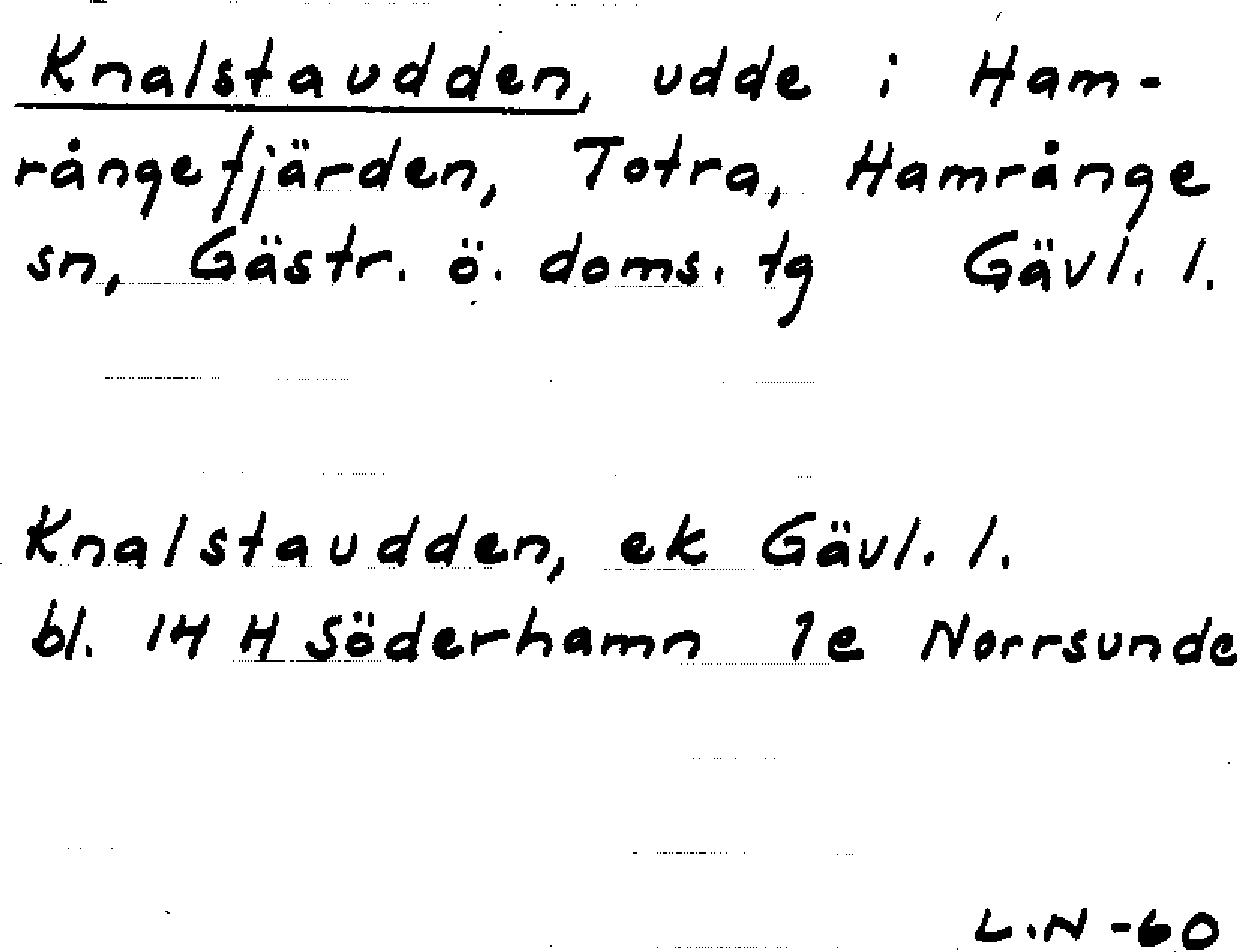 Knalstaudden, udde i Ham-
rångefjärden, Totra, Hamrånge
sn, Gästr. ö. doms. tg Gävl. l.
Knalstaudden, ek Gävl. l.
bl. 14 H Söderhamn 1e Norrsunde
L.N -60